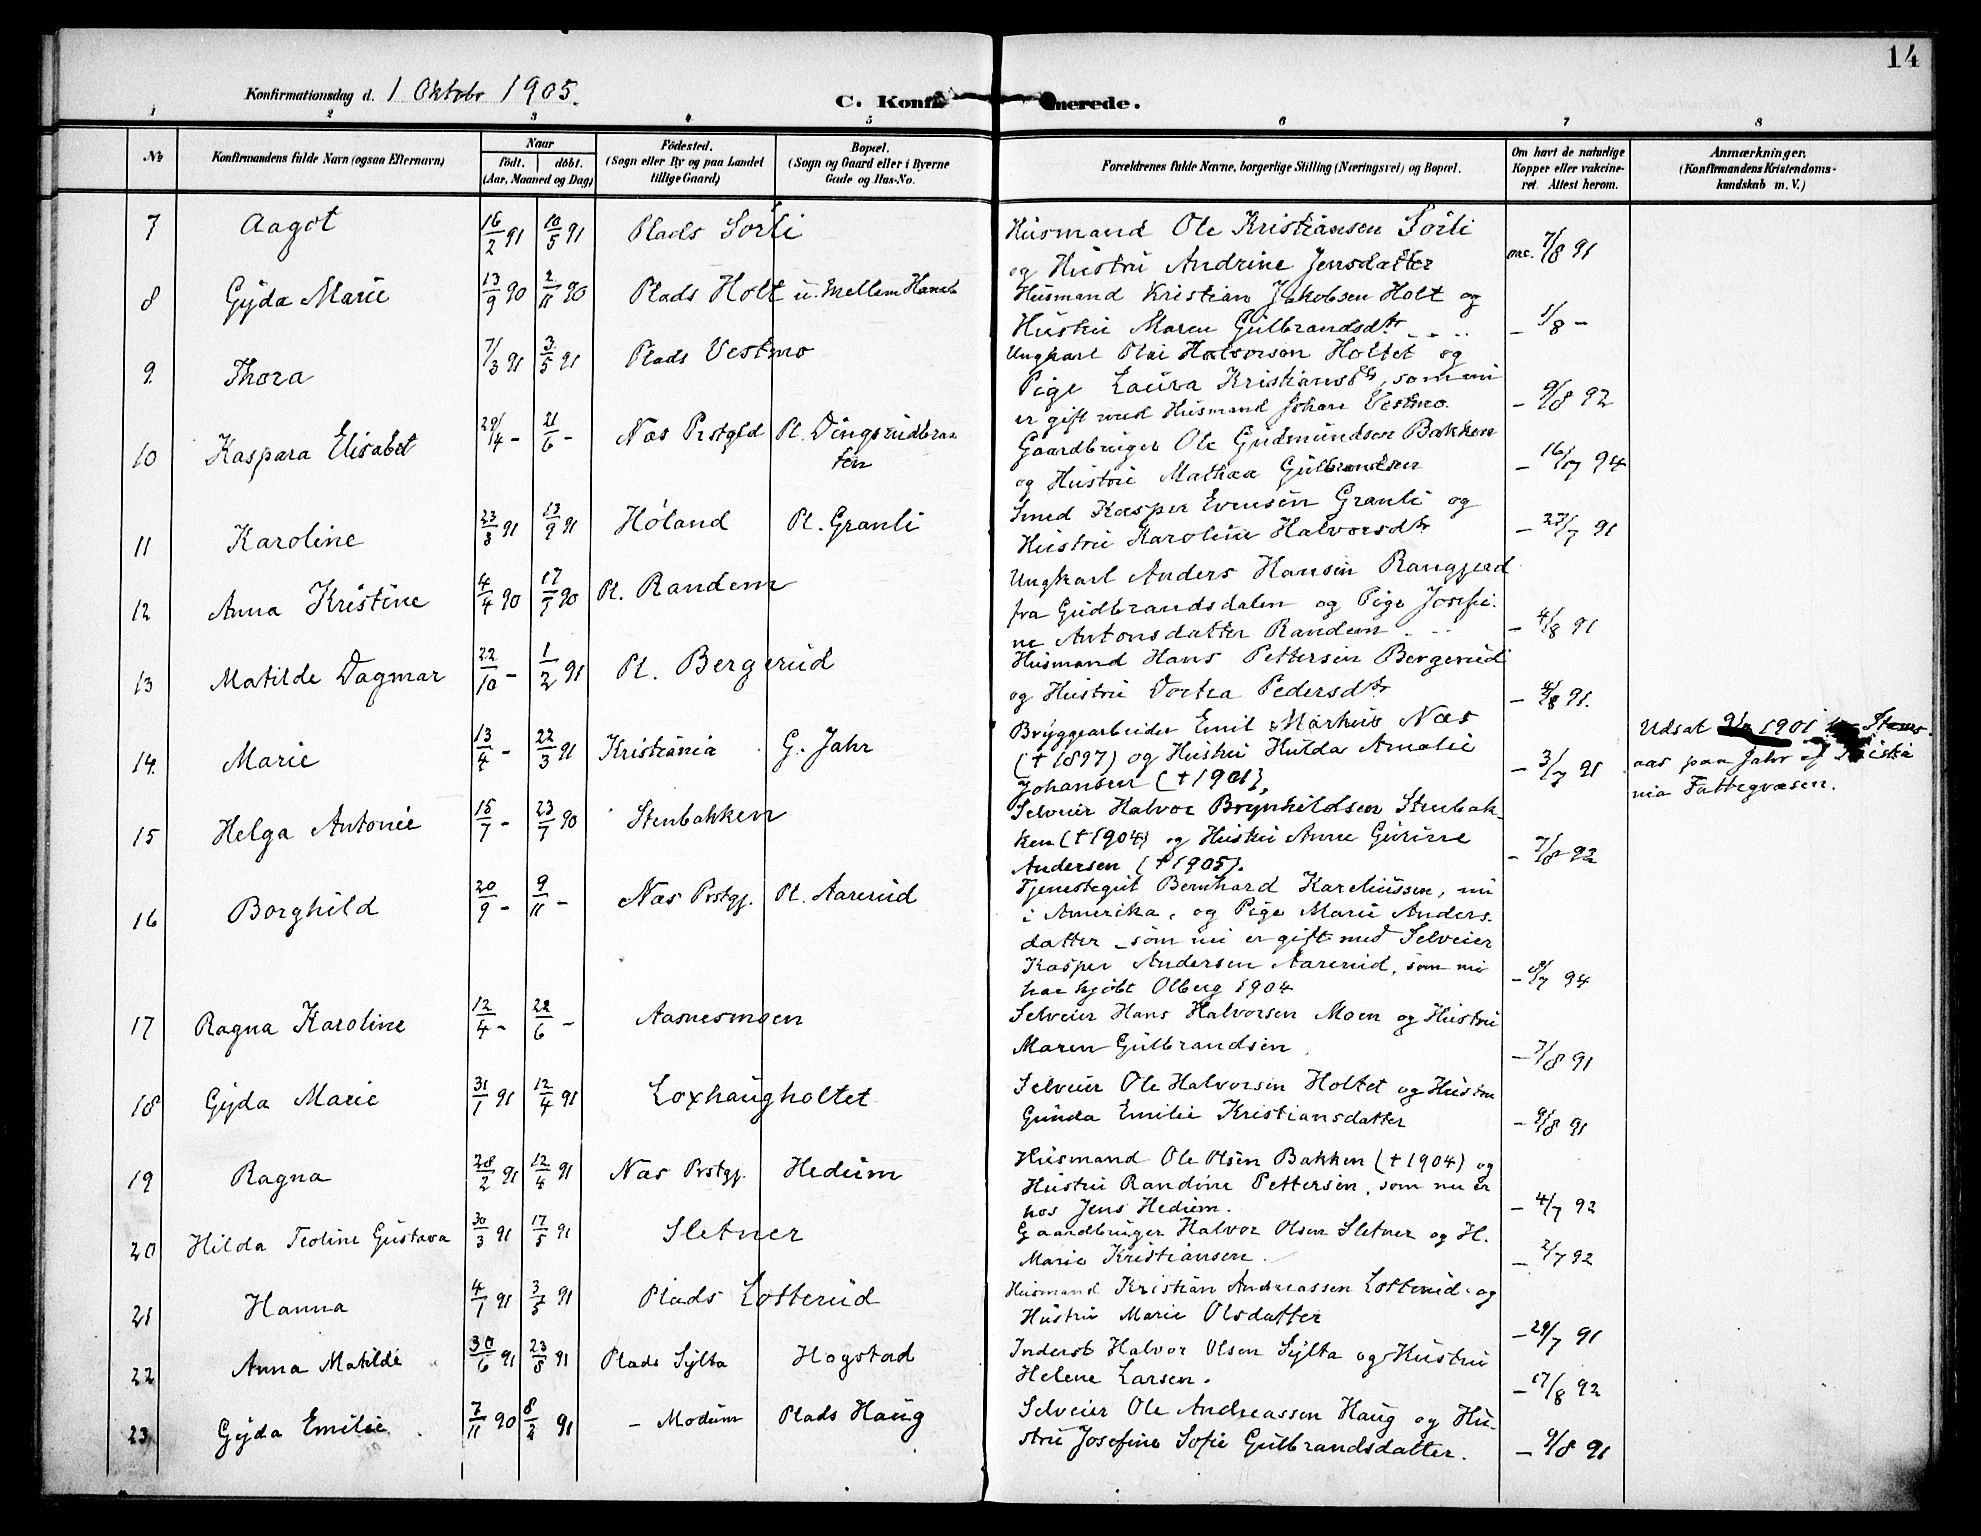 14
Konfirmationsdag d. 1 Oktobr 1905.
C. Konfirmerede.
1 2 3 4 5 6 7 8
No Konfirmandens fulde Navn (ogsaa Efternavn) Naar født. døbt. (Aar, Maaned og Dag) Fødested. (Sogn eller By og paa Landet tillige Gaard) Bopæl. (Sogn og Gaard eller i Byerne Gade og Hus-No. Forældrenes fulde Navne, borgerlige Stilling (Næringsvei) og Bopæl. Om havt de naturlige Kopper eller vaccineret. Attest herom. Anmærkninger. (Konfirmandens Kristendomskundskab m. V.)
7 Aagot 16/2 91 10/5 91 Plads Sørli Husmand Ole Kristiansen Sörli
og Hustru Andrine Jensdatter vac. 7/8 91
8 Gyda Marie 13/9 90 2/11 90 Plads Holt u. Mellem Husmand Kristian Jakobsen Holt og
Hustru Maren Gulbrandsdtr – 1/8 –
9. Thora 7/3 91 3/5 91 Plads Vestmo Ungkarl Olai Halvorsen Holtet og
Pige Laura Kristiansdtr, som nu
er gift med Husmand Johan Vestmo. – 9/8 92
10 Kaspara Elisabet 29/4 – 21/6 – Næs Prstgld Pl. Dingsrudbraaten Gaardbruger Ole Gudmundsen Bakken
og Hustru Mathea Gulbrandsen – 16/7 94
11 Karoline 23/3 91 13/9 91 Høland Pl. Granli Smed Kasper Evensen Granli og
Hustru Karoline Halvorsdtr – 27/7 91
12 Anna Kristine 4/4 90 17/7 90 Pl. Randem Ungkarl Anders Hansen Ranggjerd
fra Gudbrandsdalen og Pige Josefi-
ne Antonsdatter Randem – 4/8 91
13 Matilde Dagmar 22/10 – 1/2 91 Pl. Bergerud Husmand Hans Pettersen Bergerud
og Hustru Dortea Pedersdtr – 4/8 91.
14. Marie 13/4 – 22/3 91 Kristiania G. Jahr Bryggearbeider Emil Markus Næs
(† 1897) og Hustru Hulda Amalie
Johansen († 1901), – 3/7 91 Udsat 1901
aas paa Jahr af Kristia
nia Fattegvæsen.
15 Helga Antonie 15/7 – 23/7 90 Stenbakken Selveier Halvor Brynhildsen Stenbak-
ken († 1904) og Hustru Anne Gurine
Andersen († 1905). – 7/8 92
16 Borghild 20/9 – 9/11 – Næs Prstgj. Pl. Aarerud Tjenestegut Bernhard Kareliussen, nu
i Amerika, og Pige Marie Anders-
datter – som nu er gift med Selveier
Kasper Andersen Aarerud, som nu
har kjøbt Olberg 1904 – 8/7 94
17 Ragna Karoline 12/4 – 22/6 – Aasnesmoen Selveier Hans Halvorsen Moen og Hustru
Maren Gulbrandsen – 7/8 91
18 Gyda Marie 31/1 91 12/4 91 Loxhaugholtet Selveier Ole Halvorsen Holtet og Hustru
Gunda Emilie Kristiansdatter – 9/8 91
19 Ragna 28/2 91 12/4 91 Næs Prstgj. Hedum Husmand Ole Olsen Bakken († 1904) og
Hustru Randine Pettersen, som nu er
hos Jens Hedum. – 4/7 92
20 Hilda Teoline Gustava 30/3 91 17/5 91 Sletner Gaardbruger Halvor Olsen Sletner og H.
Marie Kristiansen. – 2/7 92
21 Hanna 4/1 91 3/5 91 Plads Lotterud Husmand Kristian Andreassen Lotterud og
Hustru Marie Olsdatter – 29/7 91
22 Anna Matilde 30/6 91 23/8 91 Plads Sylta Hogstad Inderst Halvor Olsen Sylta og Hustru
Helene Larsen. – 17/8 92
23 Gyda Emilie 7/11 90 8/2 91 – Modum Plads Haug Selveier Ole Andreassen Haug og Hu-
stru Josefine Sofie Gulbrandsdatter. – 9/8 91